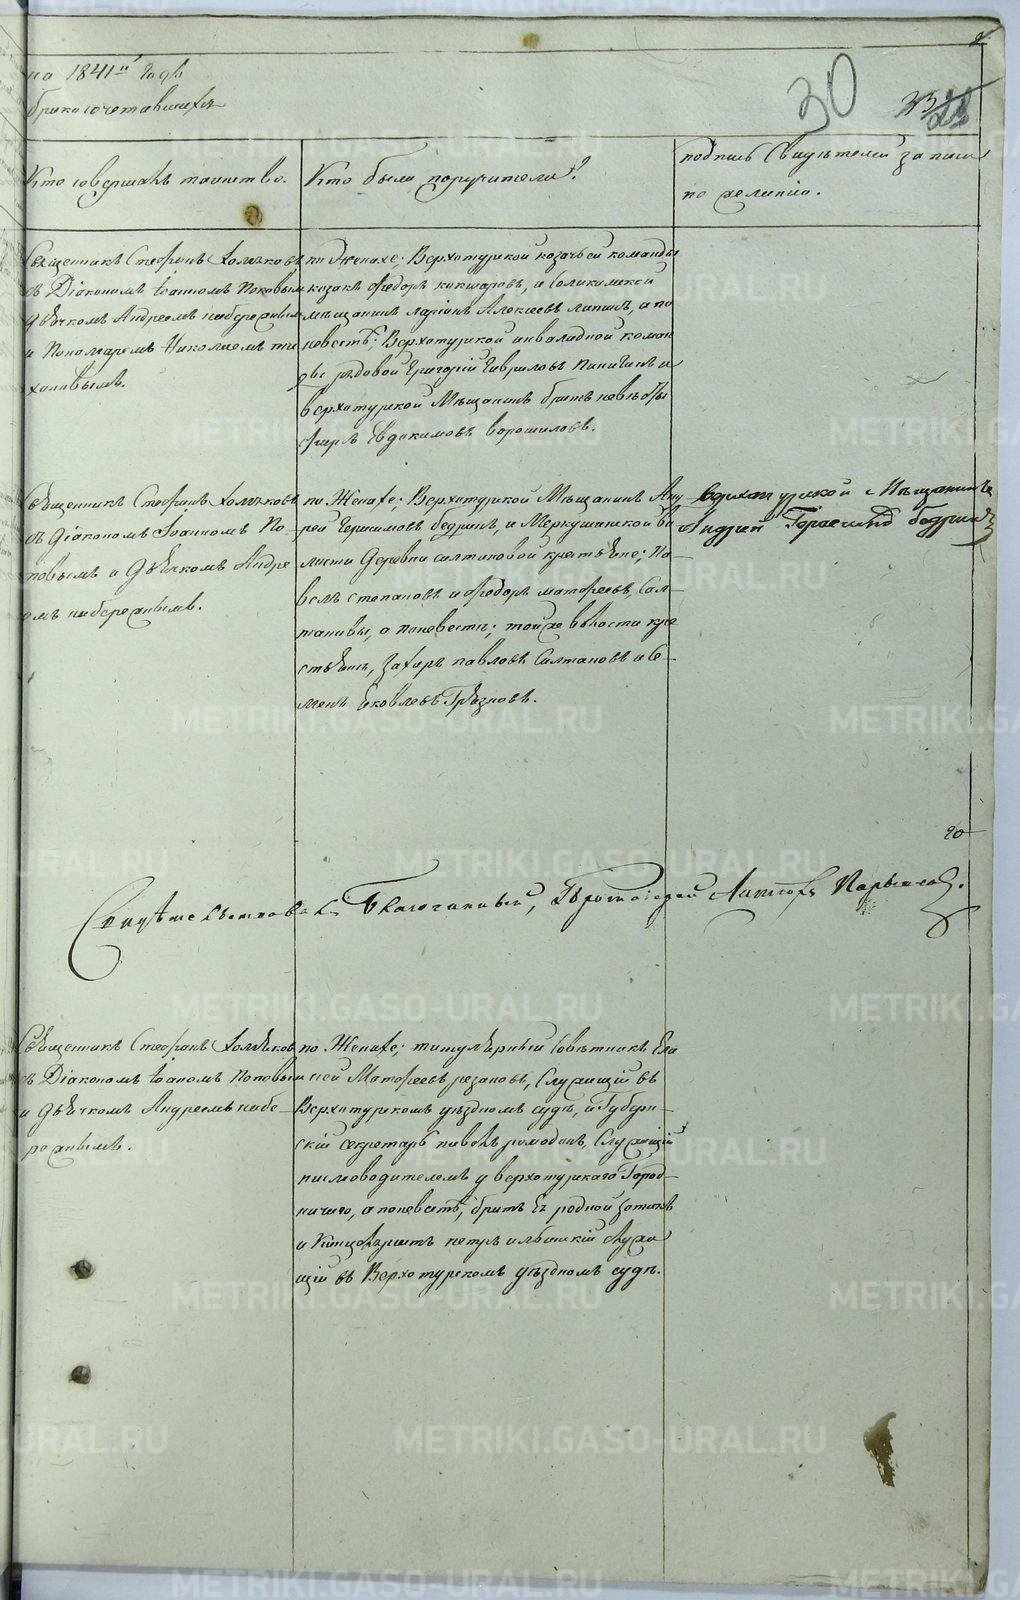 на 1841й Годъ
бракосочетавшихся
30
Кто совершалъ таинство.
Кто были поручители?
подпись Свидѣтелей записи
по желанію.
Священникъ Стефанъ Холмековъ
съ Діакономъ Іоанномъ Поповымъ
дьячкомъ Андреемъ набережнымъ
и Пономаремъ Николаемъ ти
хановымъ.
по Женихе; Верхотурской козачьей команды
козакъ Федоръ кокшаровъ, и Соликамской
мѣщанинъ ларіонъ Алексеевъ лапинъ, а по
невестѣ; Верхотурской инвалидной коман
ды рядовой Григорій Гавриловъ Пинигинъ и
верхотурской Мѣщанинъ братъ невѣсты
Евдокимовъ ворошиловъ.
Священникъ Стефанъ Холмековъ
съ діакономъ Іоанномъ По-
повымъ и дьячкомъ Андре
емъ набережнымъ.
по Женихе; Верхотурской Мѣщанинъ Анд
рей Герасимовъ бедринъ, и Меркушинской во
лости деревни салтановой крестьяне; Па-
велъ степановъ и Федоръ матфеевъ, Сал-
тановы, а поневестѣ; тойже волости кре
стьяне, Захаръ павловъ Салтановъ и Се-
менъ Яковлевъ Грязновъ.
верхотурской Мѣщанинъ
Андрей Герасимовъ бедринъ
Свидѣтельствовалъ Благочинный, Протоіерей Антоній
Священникъ Стефанъ Холмековъ
съ Діакономъ Іоаномъ Поповым
и дьячкомъ Андреемъ набе-
режнымъ.
по Женихе; титулярный Совѣтникъ Ели
сей Матфеевъ резановъ, Служащій въ
Верхотурскомъ уѣздномъ судѣ, и Губерн-
скій секретарь Служащій
писмоводителемъ у верхотурскаго Город-
ничаго, а поневестѣ, братъ Ея родной
и Канцеляристъ петръ Служа
щій въ Верхотурскомъ уѣздномъ судѣ.
METRIKI.GASO-URAL.RU